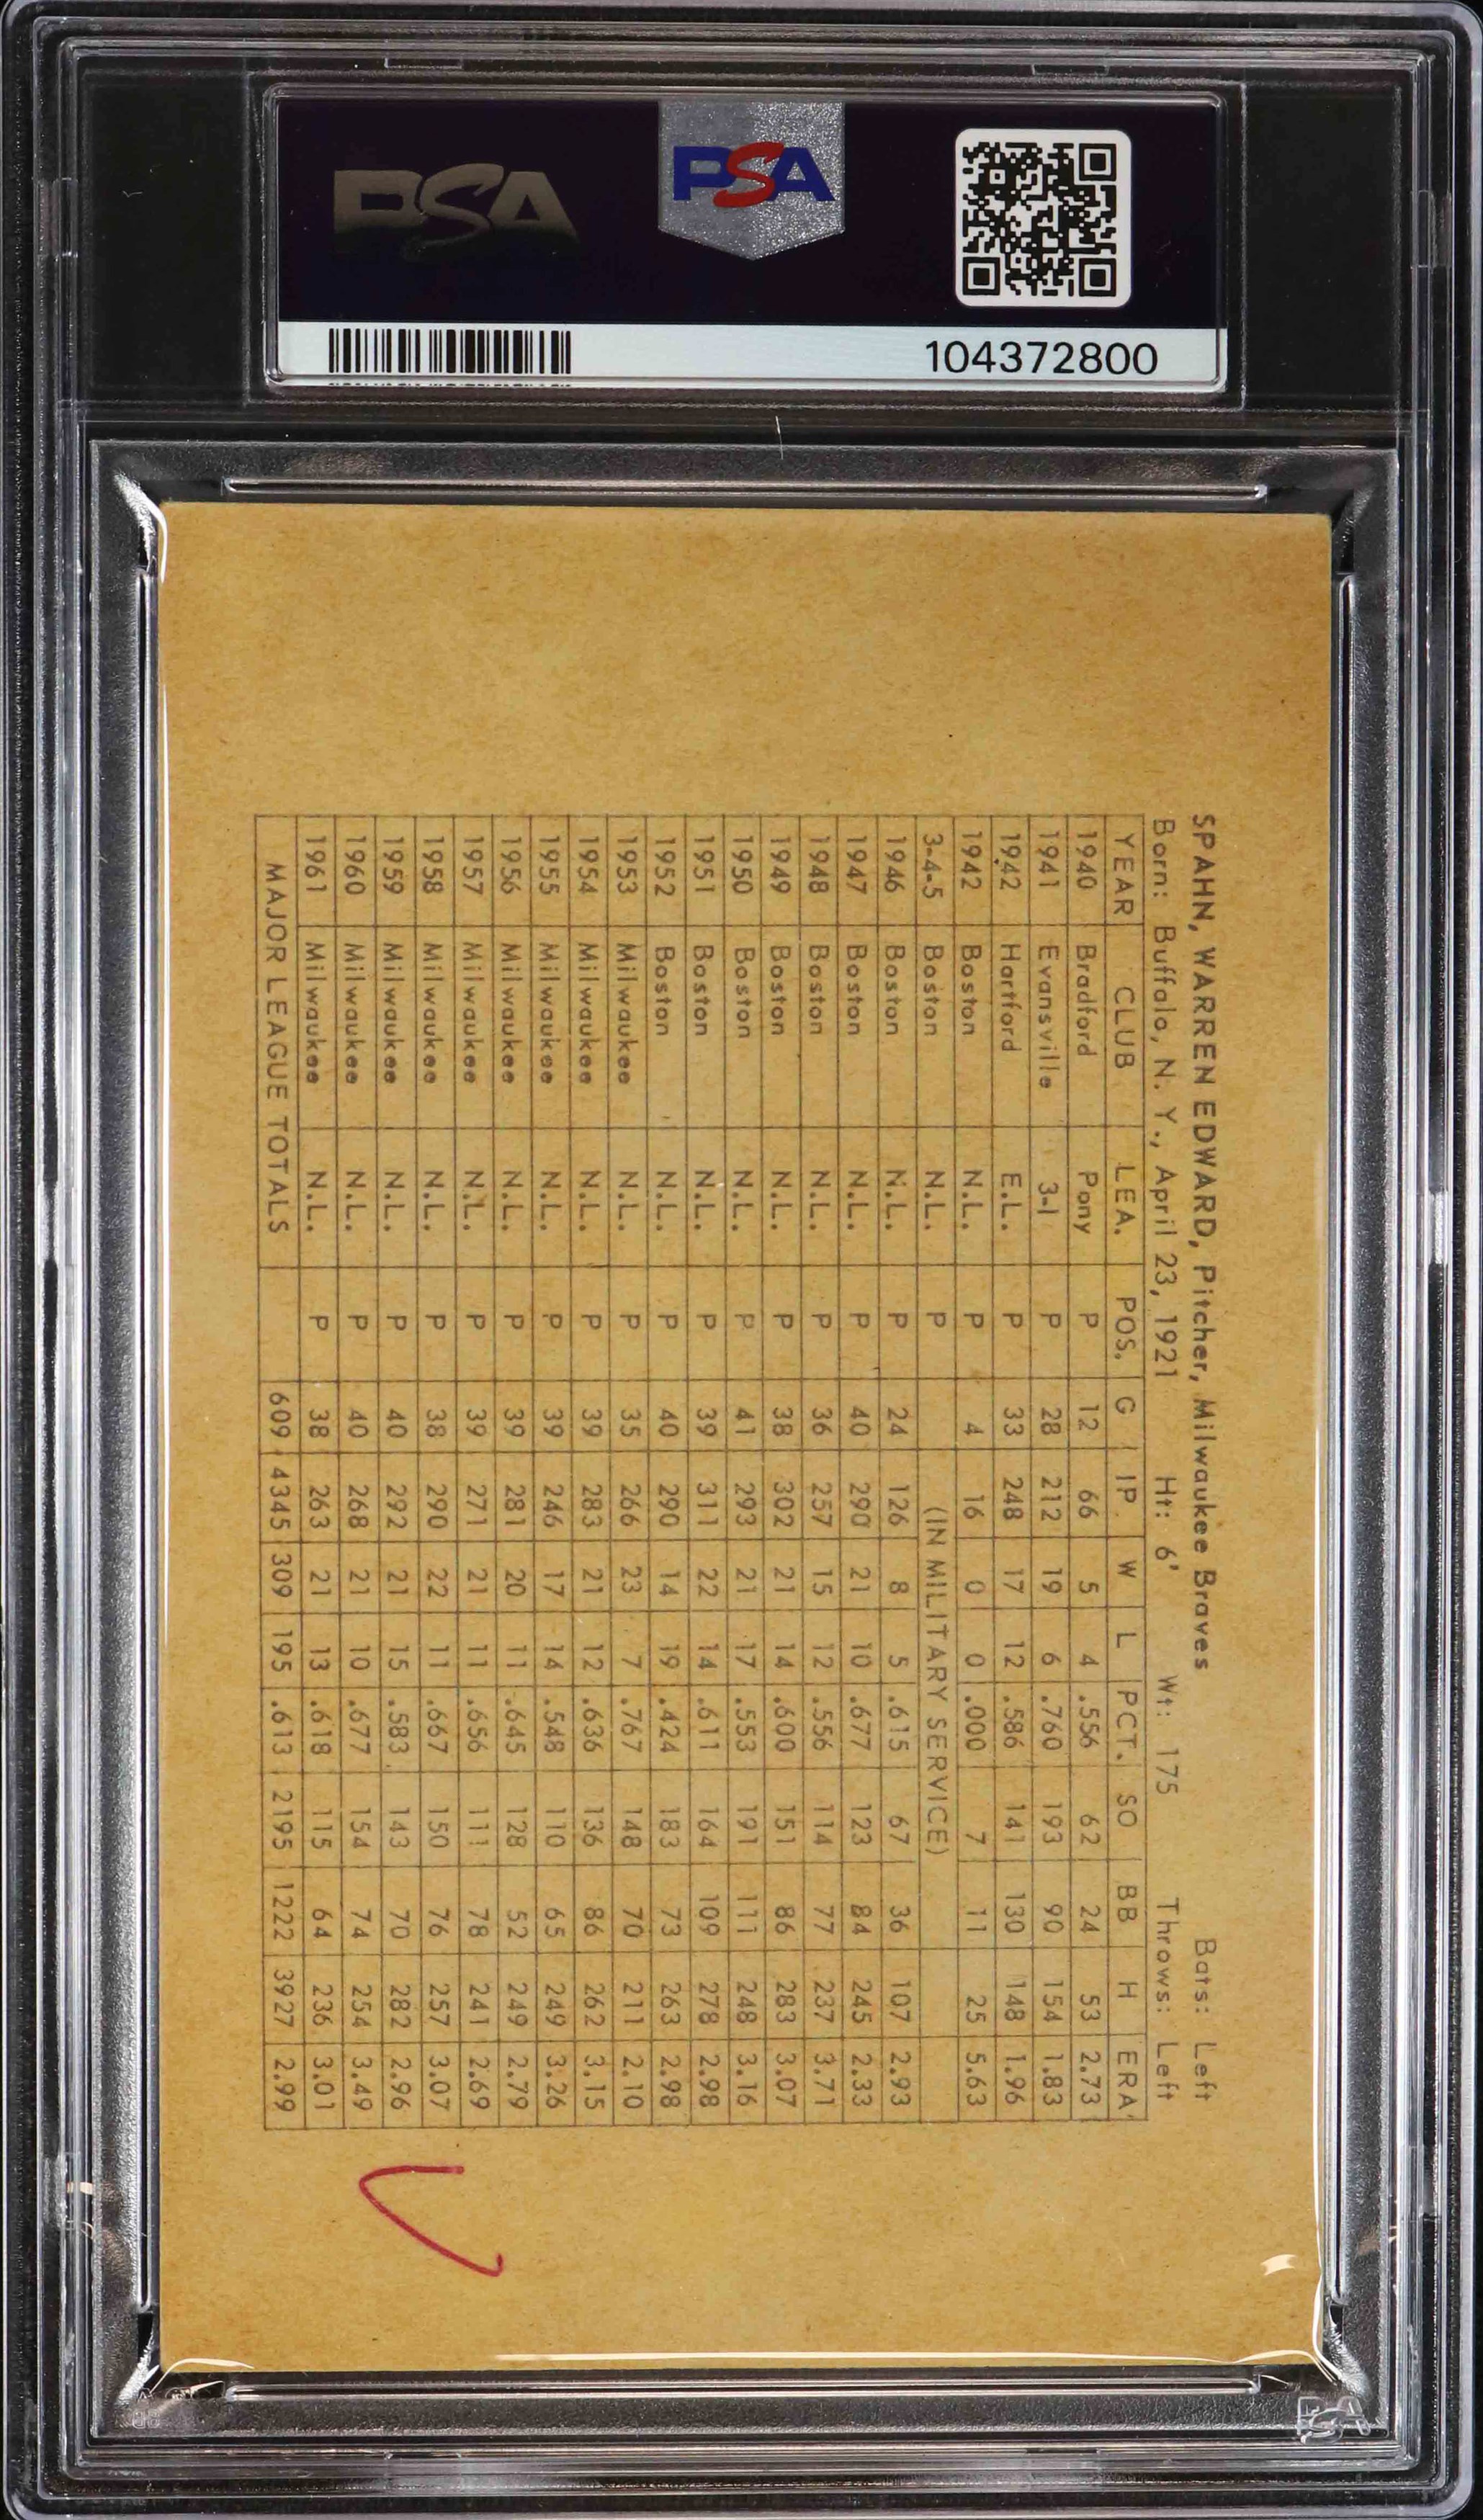 PSA
PSA
104372800
SPAHN, WARREN EDWARD, Pitcher, Milwaukee Braves Bats: Left
Born: Buffalo, N. Y., April 23, 1921 Ht: 6' Wt: 175 Throws: Left
YEAR CLUB LEA. POS. G IP W L PCT. SO BB H ERA
1940 Bradford Pony P 12 66 5 4 .556 62 24 53 2.73
1941 Evansville 3-I P 28 212 19 6 .760 193 90 154 1.83
1942 Hartford E.L. P 33 248 17 12 .586 141 130 148 1.96
1942 Boston N.L. P 4 16 0 0 .000 7 11 25 5.63
3-4-5 Boston N.L. P (IN MILITARY SERVICE)
1946 Boston N.L. P 24 126 8 5 .615 67 36 107 2.93
1947 Boston N.L. P 40 290 21 10 .677 123 84 245 2.33
1948 Boston N.L. P 36 257 15 12 .556 114 77 237 3.71
1949 Boston N.L. P 38 302 21 14 .600 151 86 283 3.07
1950 Boston N.L. P 41 293 21 17 .553 191 111 248 3.16
1951 Boston N.L. P 39 311 22 14 .611 164 109 278 2.98
1952 Boston N.L. P 40 290 14 19 .424 183 73 263 2.98
1953 Milwaukee N.L. P 35 266 23 7 .767 148 70 211 2.10
1954 Milwaukee N.L. P 39 283 21 12 .636 136 86 262 3.15
1955 Milwaukee N.L. P 39 246 17 14 .548 110 65 249 3.26
1956 Milwaukee N.L. P 39 281 20 11 .645 128 52 249 2.79
1957 Milwaukee N.L. P 39 271 21 11 .656 111 78 241 2.69
1958 Milwaukee N.L. P 38 290 22 11 .667 150 76 257 3.07
1959 Milwaukee N.L. P 40 292 21 15 .583 143 70 282 2.96
1960 Milwaukee N.L. P 40 268 21 10 .677 154 74 254 3.49
1961 Milwaukee N.L. P 38 263 21 13 .618 115 64 236 3.01
MAJOR LEAGUE TOTALS 609 4345 309 195 .613 2195 1222 3927 2.99
PSA